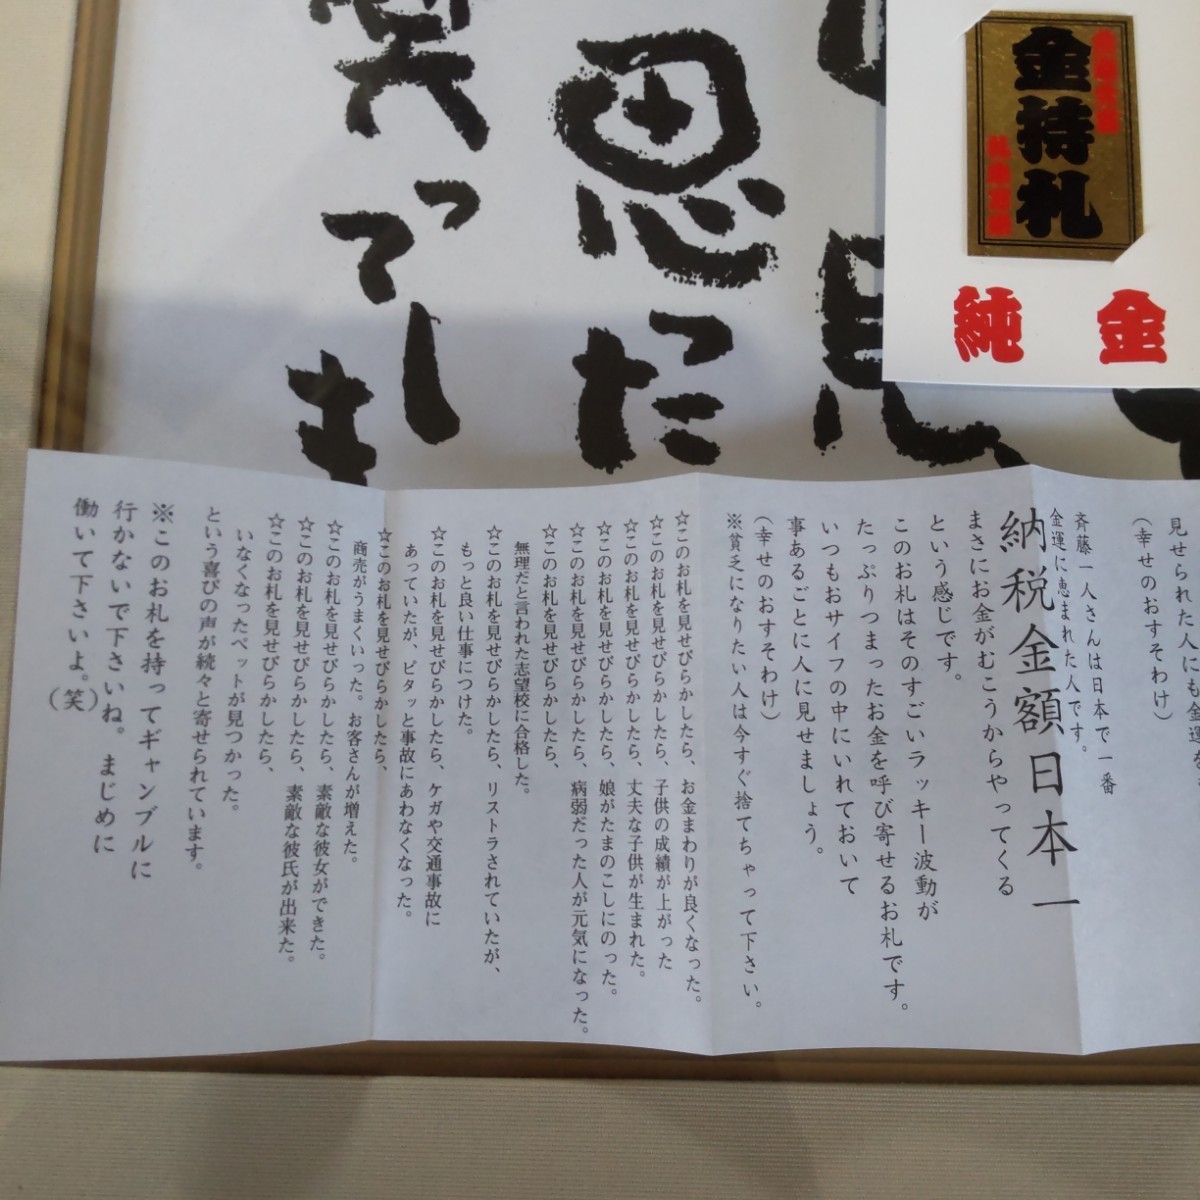 金持札
純金
思った
笑ってしま
見せられた人にも金運を
(幸せのおすそわけ)
斉藤一人さんは日本で一番
金運に恵まれた人です。
納税金額日本一
まさにお金がむこうからやってくる
という感じです。
このお札はそのすごいラッキー波動が
たっぷりつまったお金を呼び寄せるお札です。
いつもおサイフの中にいれておいて
事あるごとに人に見せましょう。
(幸せのおすそわけ)
※貧乏になりたい人は今すぐ捨てちゃって下さい。
☆このお札を見せびらかしたら、お金まわりが良くなった。
☆このお札を見せびらかしたら、子供の成績が上がった
☆このお札を見せびらかしたら、丈夫な子供が生まれた。
☆このお札を見せびらかしたら、娘がたまのこしにのった。
☆このお札を見せびらかしたら、病弱だった人が元気になった。
☆このお札を見せびらかしたら、
無理だと言われた志望校に合格した。
☆このお札を見せびらかしたら、リストラされていたが、
もっと良い仕事につけた。
☆このお札を見せびらかしたら、ケガや交通事故に
あっていたが、ピタッと事故にあわなくなった。
☆このお札を見せびらかしたら、
商売がうまくいった。お客さんが増えた。
☆このお札を見せびらかしたら、素敵な彼女ができた。
☆このお札を見せびらかしたら、素敵な彼氏が出来た。
☆このお札を見せびらかしたら、
いなくなったペットが見つかった。
という喜びの声が続々と寄せられています。
※このお札を持ってギャンブルに
行かないで下さいね。まじめに
働いて下さいよ。(笑)